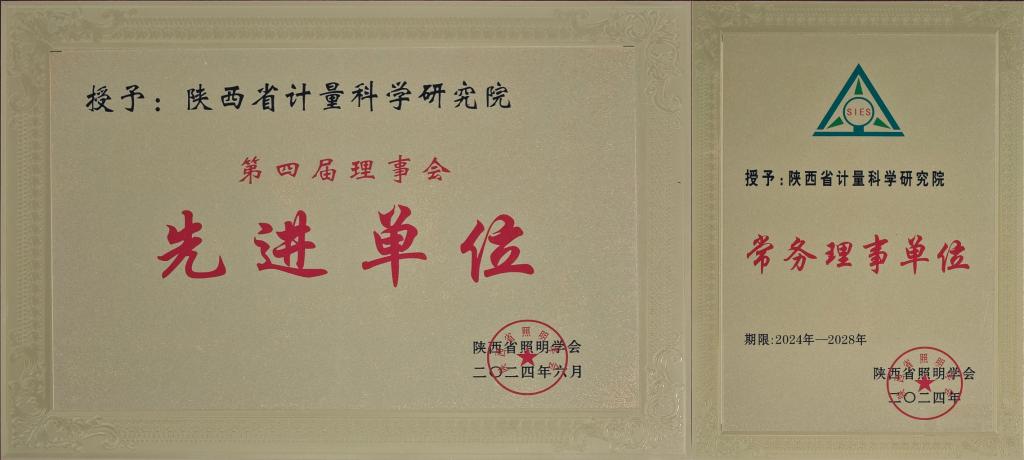 授予：陕西省计量科学研究院
第四届理事会
先进单位
陕西省照明学会
二〇二四年六月
SIES
授予:陕西省计量科学研究院
常务理事单位
期限:2024年—2028年
陕西省照明学会
二〇二四年